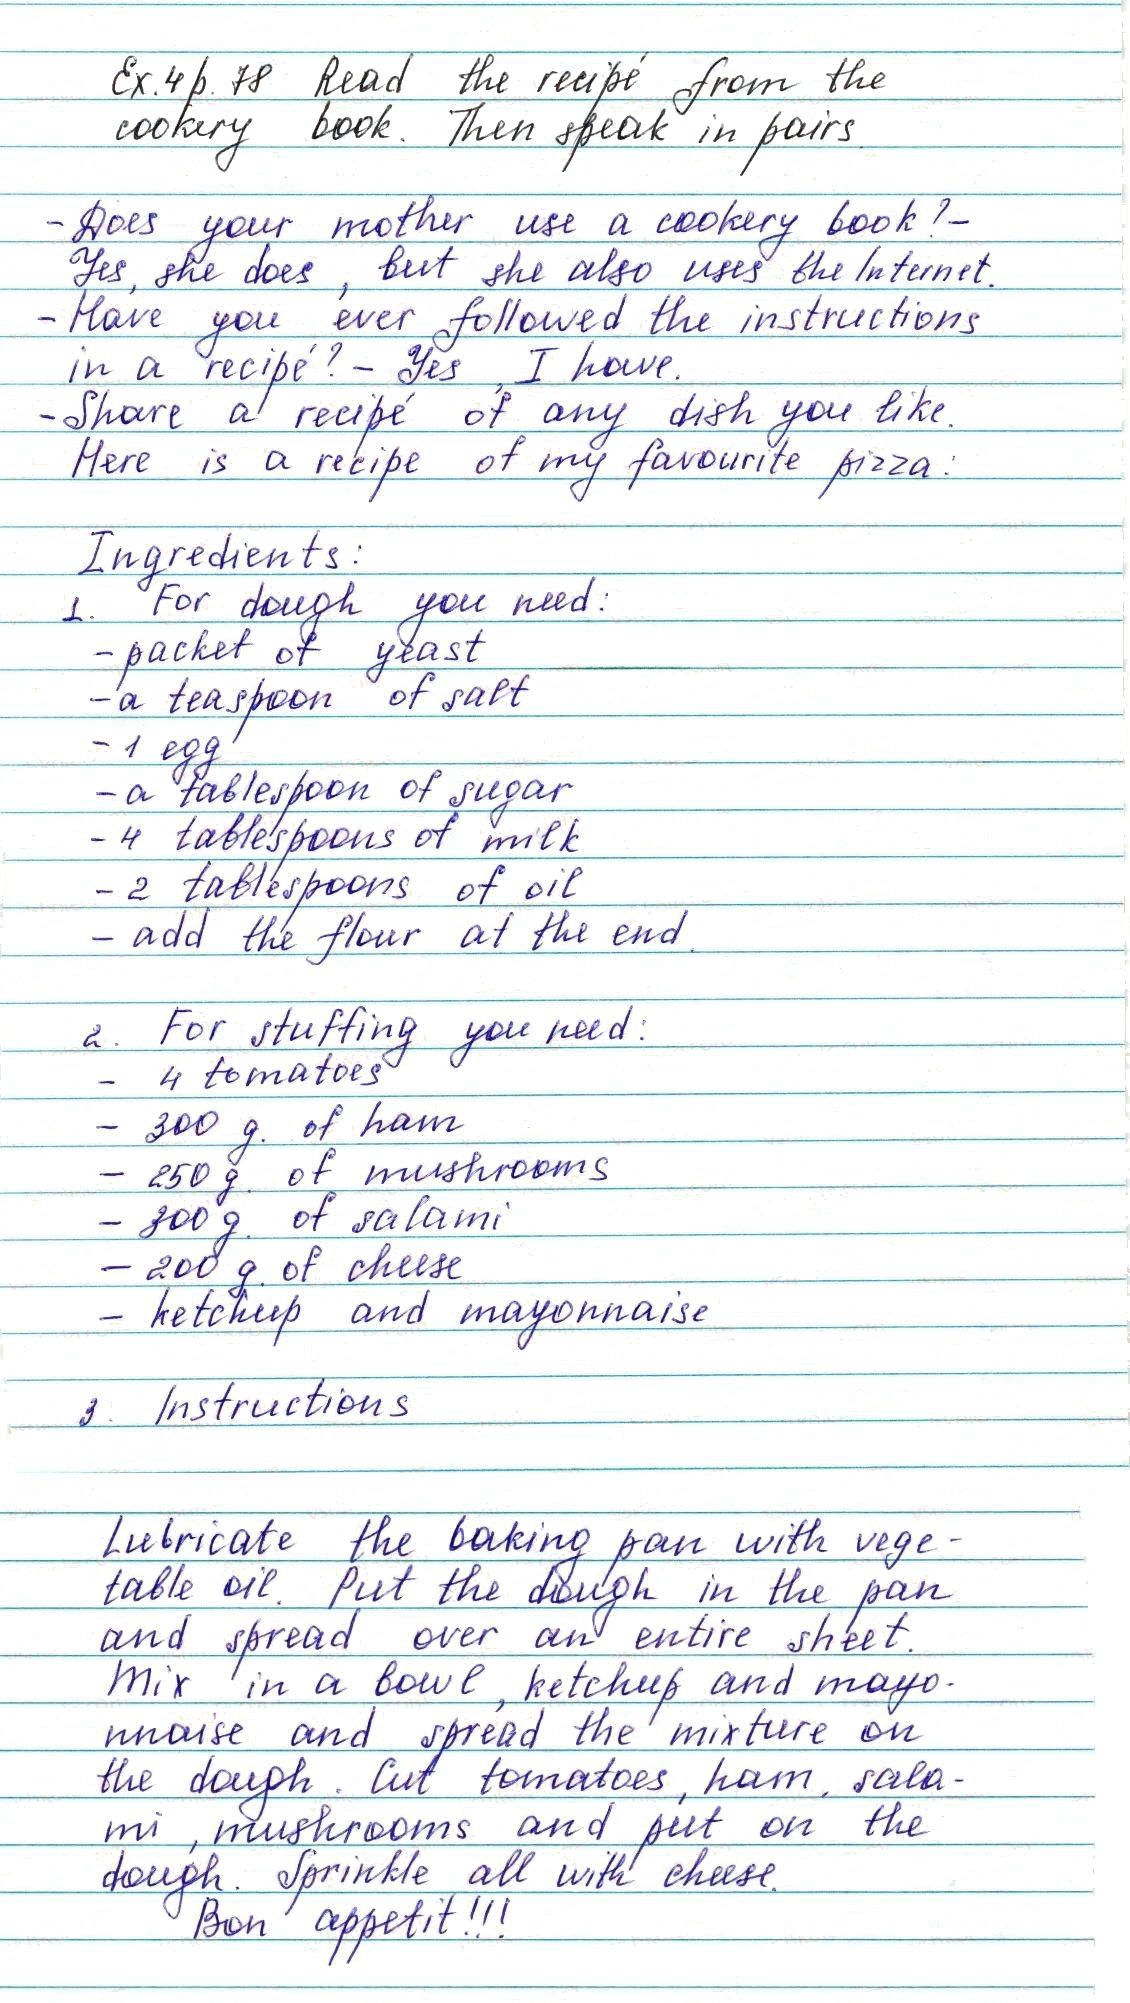 Ex. 4 p. 78 Read the recipé from the
cookery book. Then speak in pairs.
- Does your mother use a cookery book? -
Yes, she does, but she also uses the Internet.
- Have you ever followed the instructions
in a recipé? - Yes, I have.
- Share a recipé of any dish you like.
Here is a recipe of my favourite pizza:
Ingredients:
1. For dough you need:
- packet of yeast
- a teaspoon of salt
- 1 egg
- a tablespoon of sugar
- 4 tablespoons of milk
- 2 tablespoons of oil
- add the flour at the end.
2. For stuffing you need:
- 4 tomatoes
- 300 g. of ham
- 250 g. of mushrooms
- 300 g. of salami
- 200 g. of cheese
- ketchup and mayonnaise
3. Instructions
Lubricate the baking pan with vege-
table oil. Put the dough in the pan
and spread over an entire sheet.
Mix in a bowl, ketchup and mayo-
nnaise and spread the mixture on
the dough. Cut tomatoes, ham, sala-
mi, mushrooms and put on the
dough. Sprinkle all with cheese.
Bon appetit!!!